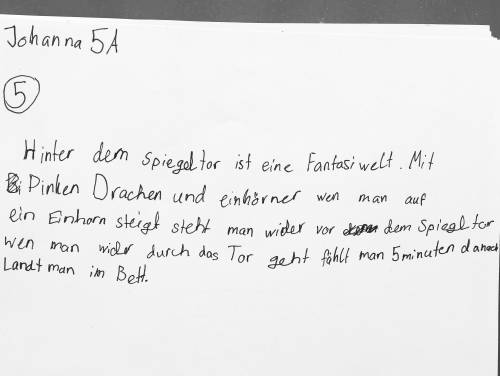 Johanna 5A
5
Hinter dem spiegeltor ist eine Fantasiwelt. Mit
Pinken Drachen und einhörner wen man auf
ein Einhorn steigt steht man wider vor dem Spiegltor
wen man wider durch das Tor geht fählt man 5minuten danach
Landt man im Bett.